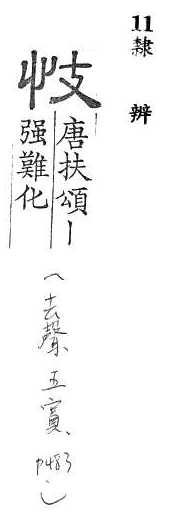 11隸辨
忮
唐扶頌｜
强難化
(去聲五寘、p483)